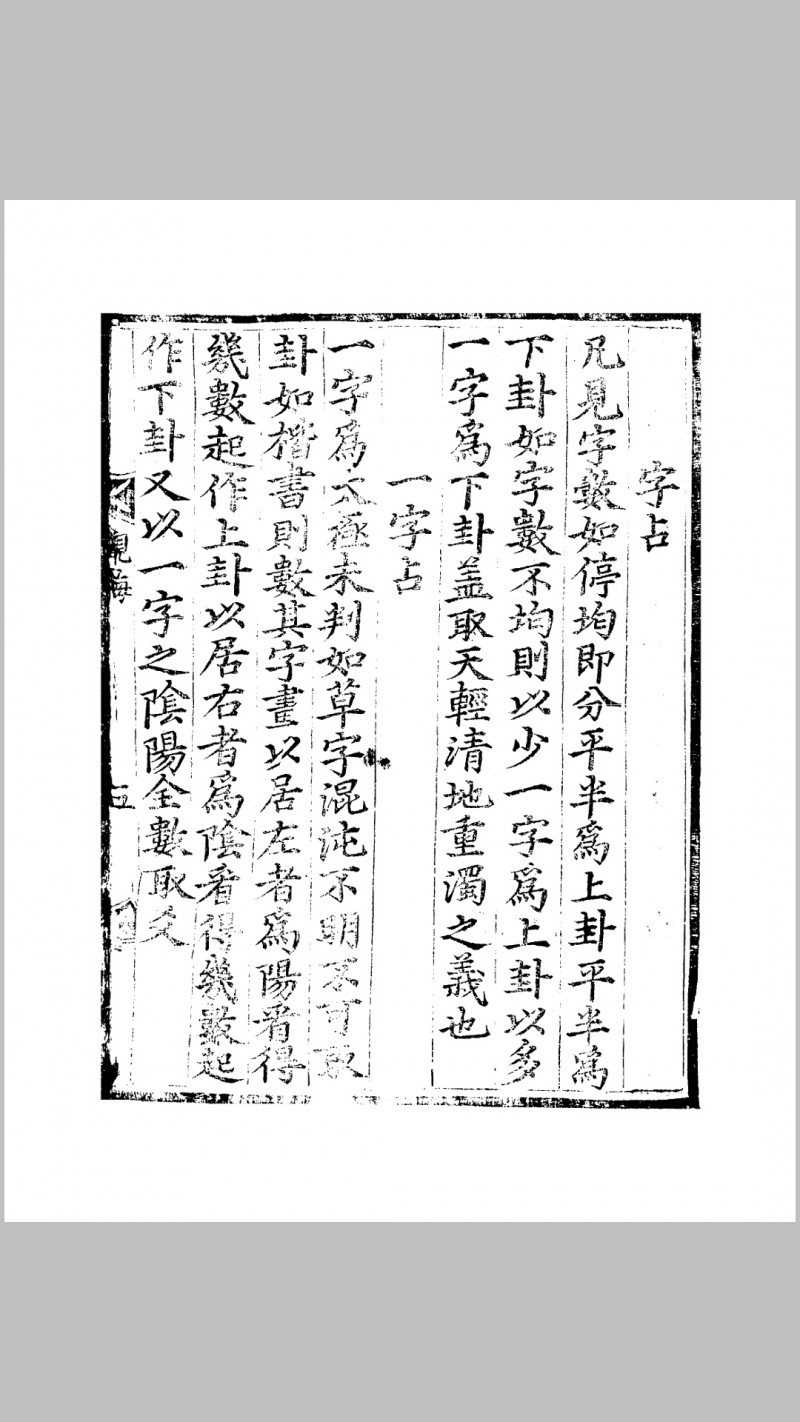 字占
凡見字數如停均即分平半爲上卦平半爲
下卦如字數不均則以少一字爲上卦以多
一字爲下卦盖取天輕清地重濁之義也
一字占
一字爲太極未判如草字混沌不明不可取
卦如楷書則數其字畫以居左者爲陽看得
幾數起作上卦以居右者爲陰看得幾數起
作下卦又以一字之陰陽全數取爻
觀梅
五